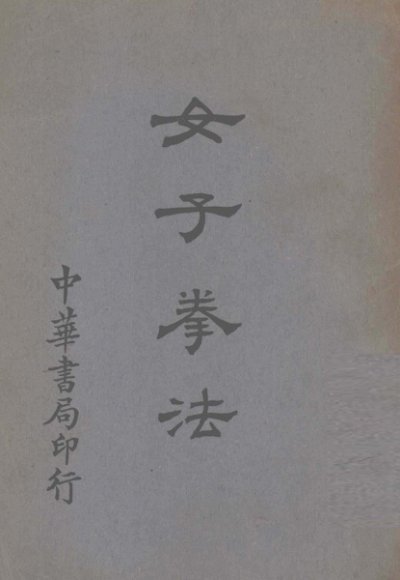 女子拳法
中華書局印行